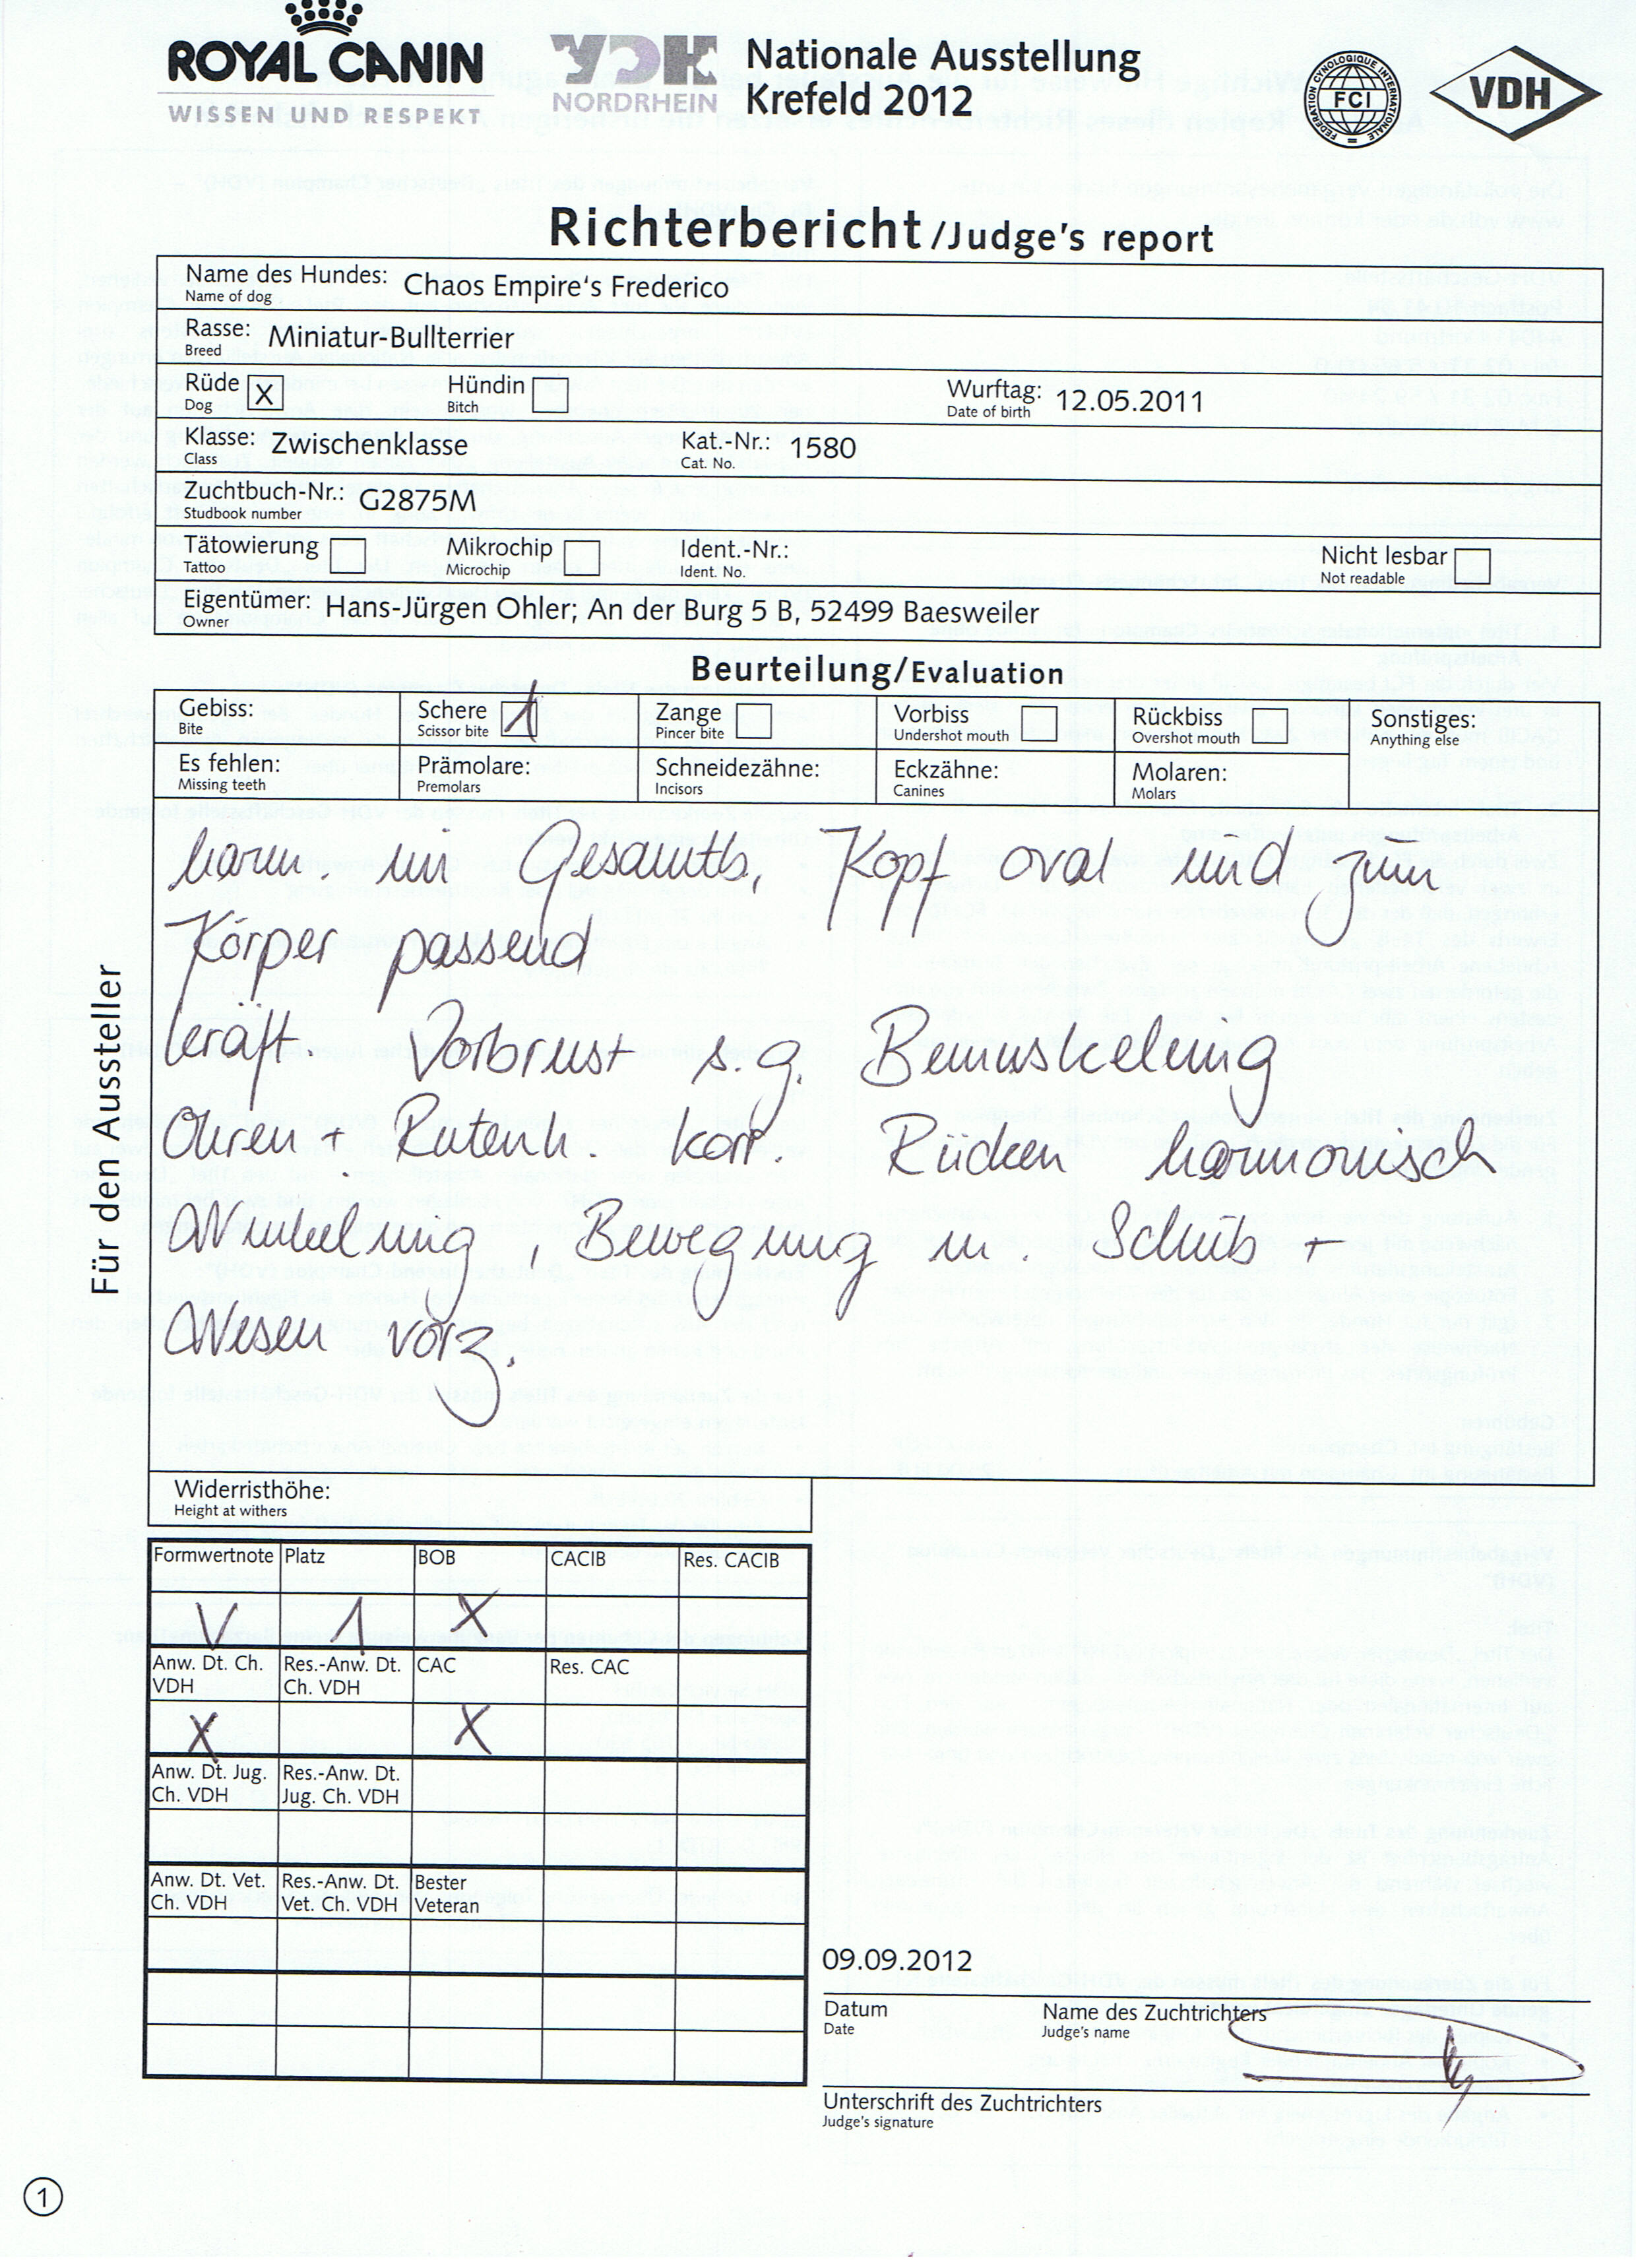 ROYAL CANIN
WISSEN UND RESPEKT
VDH
NORDRHEIN
Nationale Ausstellung
Krefeld 2012
FEDERATION CYNOLOGIQUE INTERNATIONALE
FCI
VDH
Richterbericht/Judge's report
Name des Hundes: Chaos Empire's Frederico
Name of dog
Rasse: Miniatur-Bullterrier
Breed
Rüde X Hündin Wurftag: 12.05.2011
Dog Bitch Date of birth
Klasse: Zwischenklasse Kat.-Nr.: 1580
Class Cat. No.
Zuchtbuch-Nr.: G2875M
Studbook number
Tätowierung Mikrochip Ident.-Nr.: Nicht lesbar
Tattoo Microchip Ident. No. Not readable
Eigentümer: Hans-Jürgen Ohler; An der Burg 5 B, 52499 Baesweiler
Owner
Beurteilung/Evaluation
Gebiss: Schere 1 Zange Vorbiss Rückbiss Sonstiges:
Bite Scissor bite Pincer bite Undershot mouth Overshot mouth Anything else
Es fehlen: Prämolare: Schneidezähne: Eckzähne: Molaren:
Missing teeth Premolars Incisors Canines Molars
Für den Aussteller
harm. im Gesamtb, Kopf oval und zum
Körper passend
kräft. Vorbrust s.g. Bemuskelung
Ohren + Rutenh. korr. Rücken harmonisch
Winkelung, Bewegung m. Schub +
Wesen vorz.
Widerristhöhe:
Height at withers
Formwertnote Platz BOB CACIB Res. CACIB
V 1 X
Anw. Dt. Ch. Res.-Anw. Dt. CAC Res. CAC
VDH Ch. VDH
X X
Anw. Dt. Jug. Res.-Anw. Dt.
Ch. VDH Jug. Ch. VDH
Anw. Dt. Vet. Res.-Anw. Dt. Bester
Ch. VDH Vet. Ch. VDH Veteran
09.09.2012
Datum Name des Zuchtrichters
Date Judge's name
Unterschrift des Zuchtrichters
Judge's signature
1